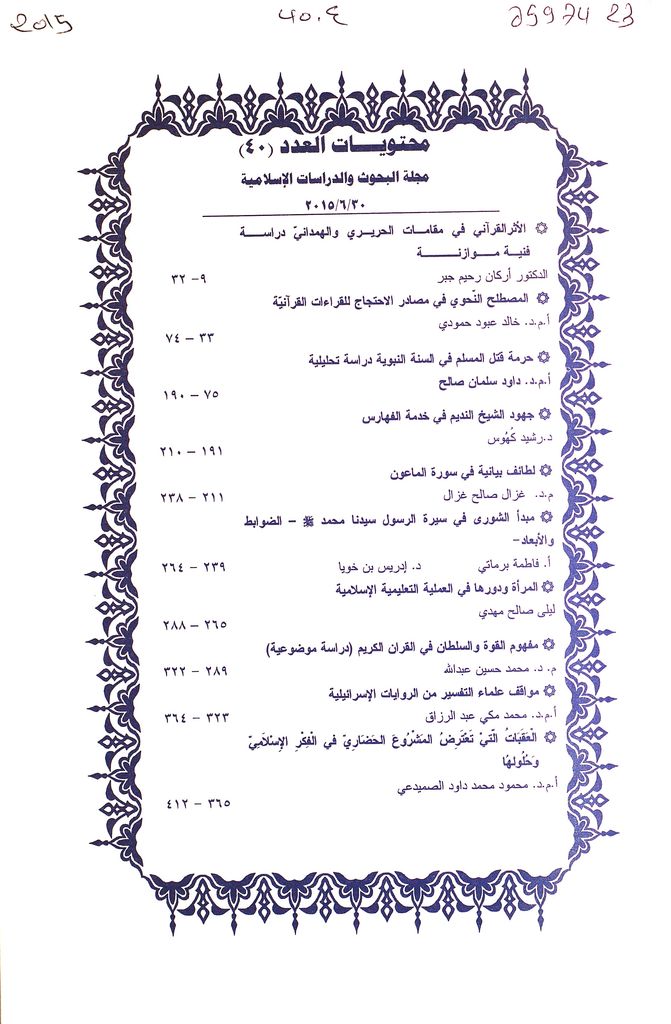 2015
٤٠.ع
25974 23
محتويات العدد (٤٠)
مجلة البحوث والدراسات الإسلامية
٢٠١٥/٦/٣٠
الأثر القرآني في مقامات الحريري والهمدانيّ دراسة
فنية موازنة
الدكتور أركان رحيم جبر ٩- ٣٢
المصطلح النّحوي في مصادر الاحتجاج للقراءات القرآنيّة
أ.م.د. خالد عبود حمودي
٣٣ – ٧٤
حرمة قتل المسلم في السنة النبوية دراسة تحليلية
أ.م.د. داود سلمان صالح
٧٥ – ١٩٠
جهود الشيخ النديم في خدمة الفهارس
د.رشيد كُهُوس
١٩١ – ٢١٠
لطائف بيانية في سورة الماعون
م.د. غزال صالح غزال ٢١١ – ٢٣٨
مبدأ الشورى في سيرة الرسول سيدنا محمد ﷺ – الضوابط
والأبعاد-
أ. فاطمة برماتي د. إدريس بن خويا ٢٣٩ – ٢٦٤
المرأة ودورها في العملية التعليمية الإسلامية
ليلى صالح مهدي
٢٦٥ – ٢٨٨
مفهوم القوة والسلطان في القران الكريم (دراسة موضوعية)
م. د. محمد حسين عبدالله ٢٨٩ – ٣٢٢
مواقف علماء التفسير من الروايات الإسرائيلية
أ.م.د. محمد مكي عبد الرزاق ٣٢٣ – ٣٦٤
الْعَقَبَاتُ الَّتِيْ تَعْتَرِضُ المَشْرُوعَ الحَضَارِيّ في الْفِكْرِ الإِسْلَامِيّ
وَحُلُولهُا
أ.م.د. محمود محمد داود الصميدعي
٣٦٥ – ٤١٢